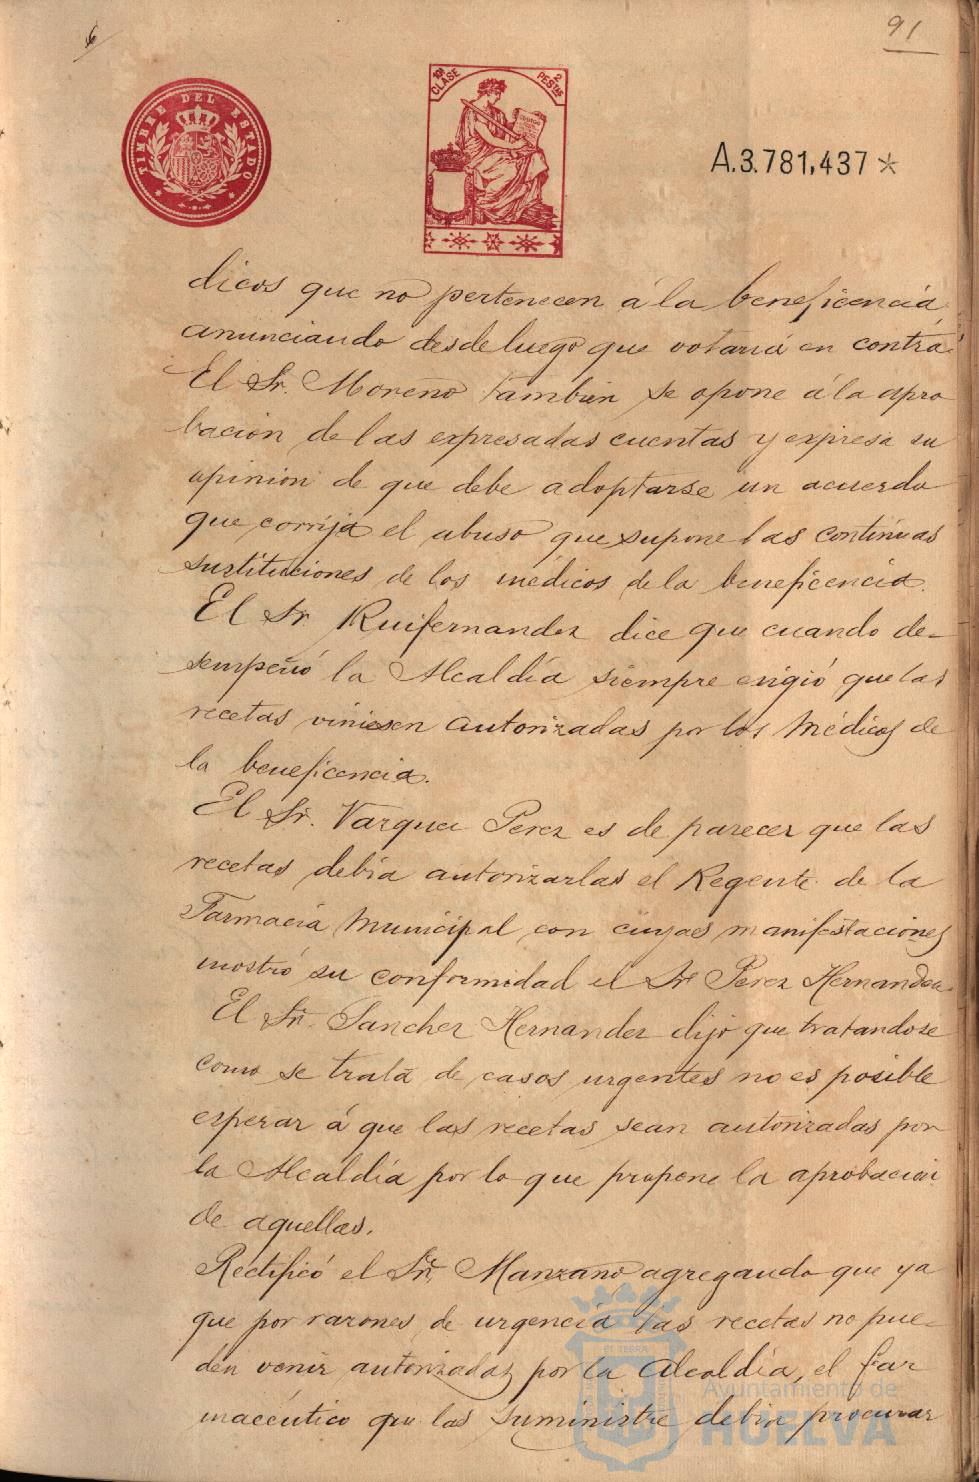 6
91
TIMBRE DEL ESTADO
10ª CLASE
2 PESTAS
A.3.781,437*
dicos que no pertenecen á la beneficencia,
anunciando desde luego que votaria en contra.
El Sr. Moreno tambien se opone á la apro
bacion de las expresadas cuentas y expresa su
opinion de que debe adoptarse un acuerdo
que corrija el abuso que supone las continuas
sustituciones de los médicos de la beneficencia.
El Sr Ruifernandez dice que cuando de-
sempeñó la Alcaldía siempre exigió que las
recetas viniesen autorizadas por los Médicos de
la beneficencia.
El Sr. Varquez Perez es de parecer que las
recetas debia autorizarlas el Regente de la
Farmacia Municipal con cuyas manifestaciones
mostró su conformidad el Sr Perez Hernandez.
El Sr. Sanchez Hernandez dijo que tratandose
como se trata de casos urgentes no es posible
esperar á que las recetas sean autorizadas por
la Alcaldía por lo que propone la aprobacion
de aquellas.
Rectificó el Sr. Manzano agregando que ya
que por razones de urgencia las recetas no pue-
den venir autorizadas por la Alcaldía, el far
maceutico que las suministre debia procurar
Ayuntamiento de
HUELVA